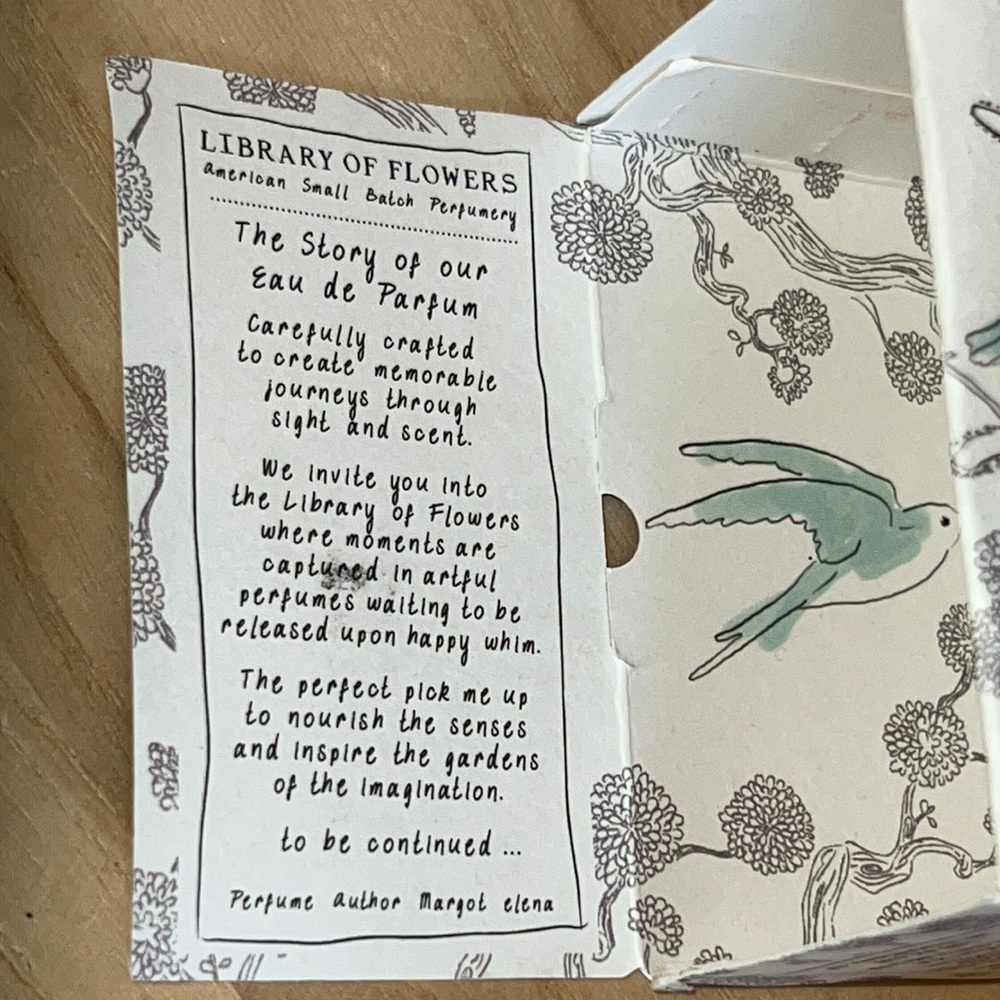 LIBRARY OF FLOWERS
american Small Batch Perfumery
The Story of our
Eau de Parfum
Carefully crafted
to create memorable
journeys through
sight and scent.
We invite you into
the Library of Flowers
where moments are
captured in artful
perfumes waiting to be
released upon happy whim.
The perfect pick me up
to nourish the senses
and inspire the gardens
of the imagination.
to be continued ...
Perfume author Margot elena